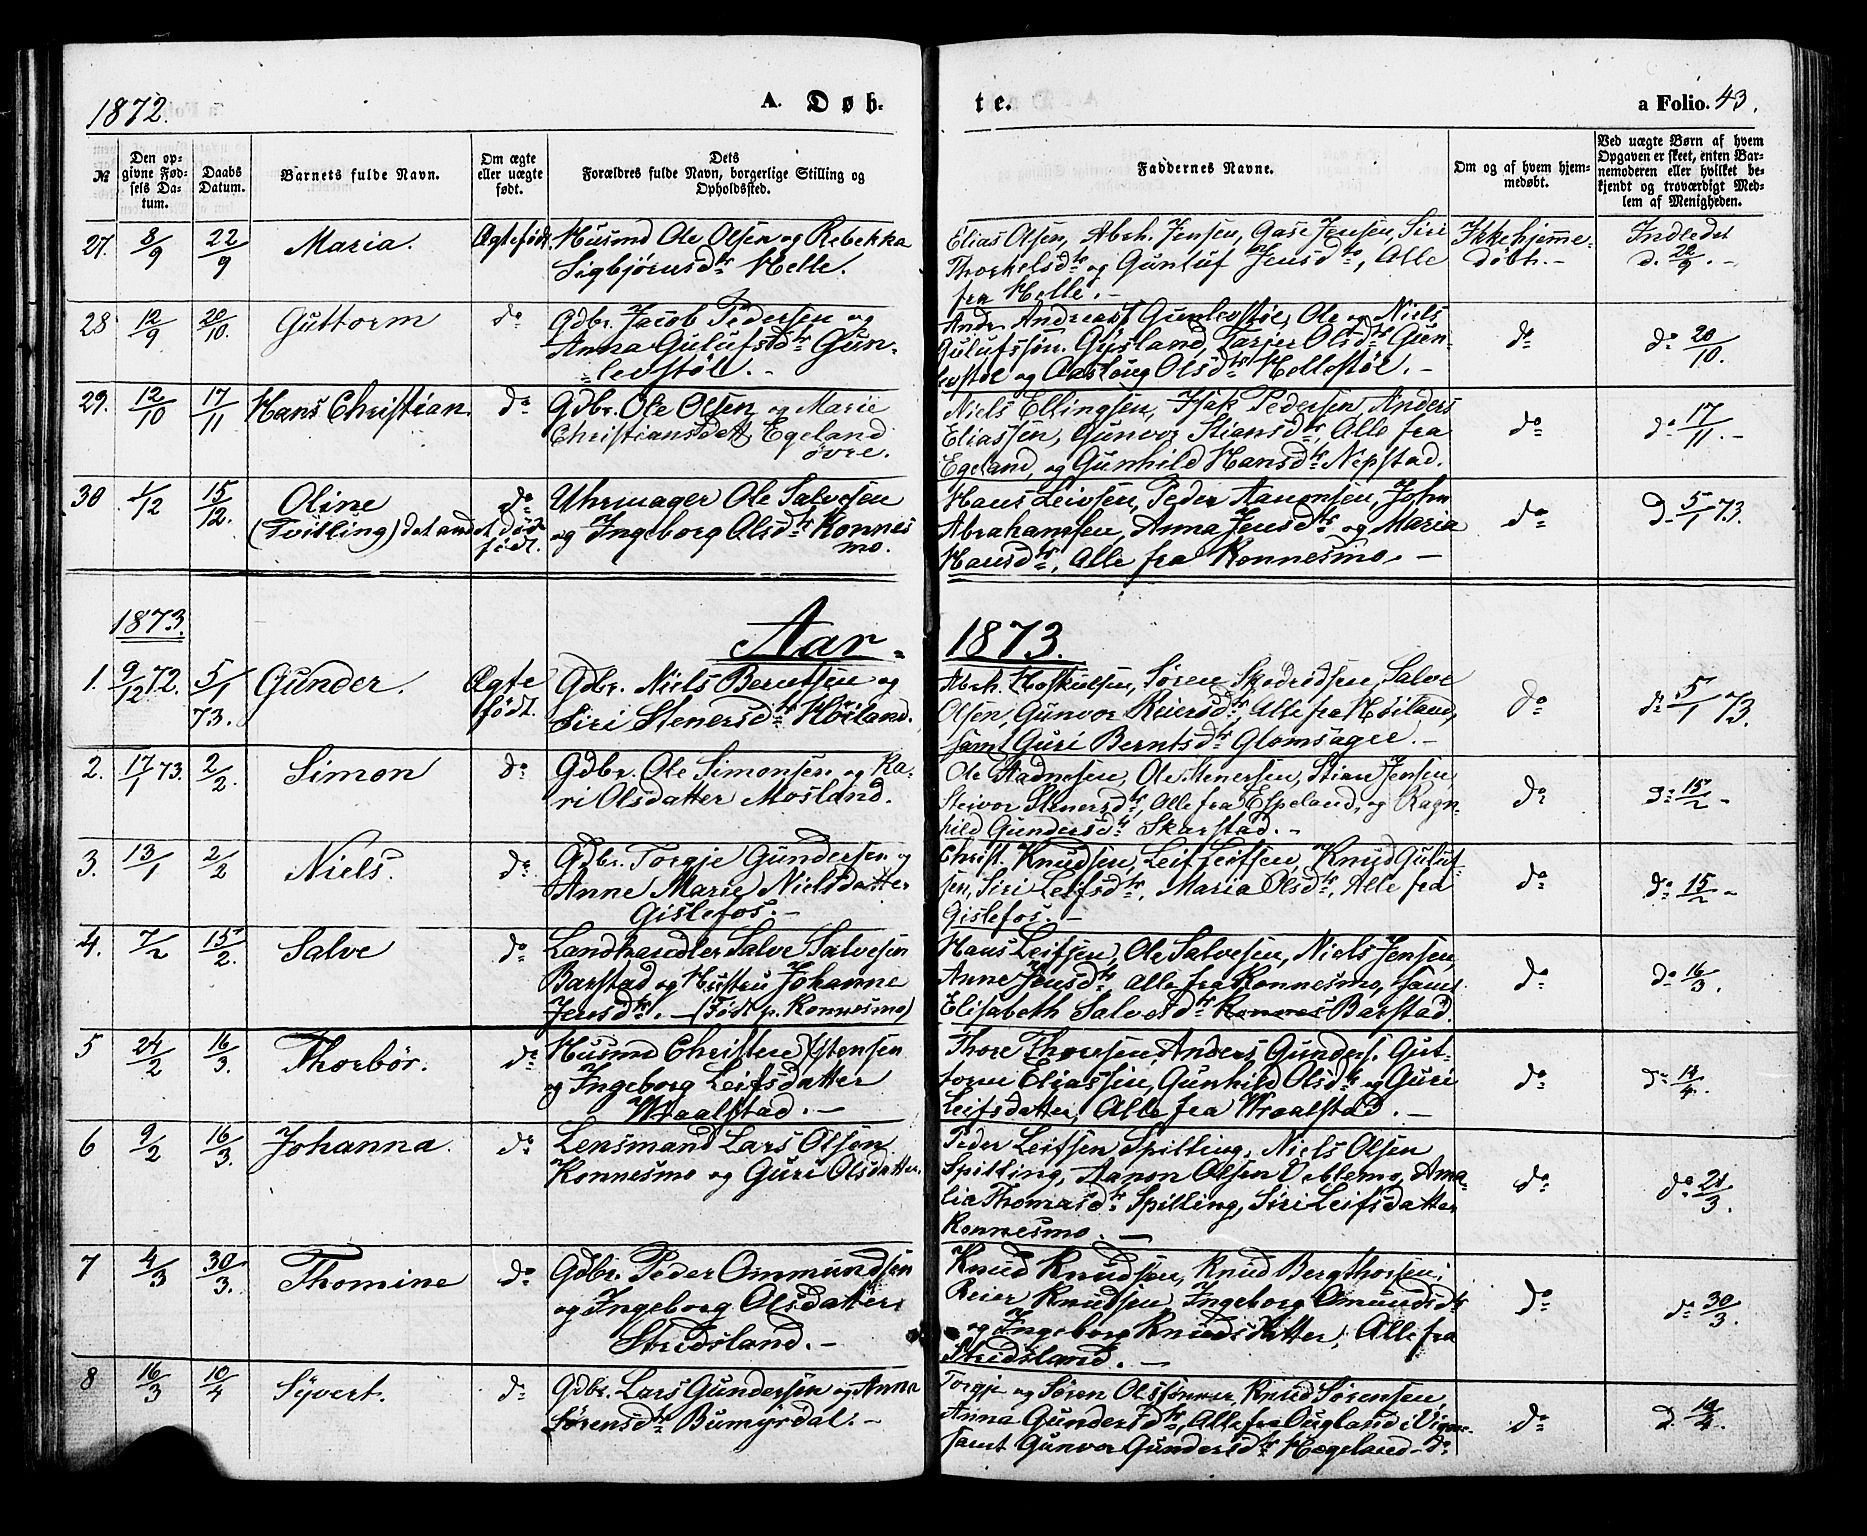 1872. A. Døb- te. a Folio. 43.
№ Den opgivne Fødsels Datum. Daabs Datum. Barnets fulde Navn. Om ægte eller uægte født. Dets Forældres fulde Navn, borgerlige Stilling og Opholdssted. Faddernes Navne. Om og af hvem hjemmedøbt. Ved uægte Børn af hvem Opgaven er skeet, enten Barnemoderen eller hvilket bekjendt og troværdigt Medlem af Menigheden.
27. 8/9 22/9 Maria. Ægtefødt. Husmd Ole Olsen og Rebekka
Sigbjørnsdtr Helle.
Elias Olsen, Abrh. Jensen, Gase Jensen, Siri
Thorkelsdtr og Gunluf Jensdtr, Alle
fra Helle. -
Ikke hjemme-
døbt. -
Indledet
d. 22/9. -
28 12/9 20/10. Guttorm do Gdbr. Jacob Pedersen og
Anna Gulufsdtr Gun-
levstøl. -
Andr. Andreass Gunlevstøl, Ole og Niels
Gulufssøn. Gusland, Tarjer Olsdtr Gun-
levstøl og Aaslaug Olsdtr Hellestøl. -
do
do 20/10.
29. 12/10 17/11 Hans Christian. do Gdbr. Ole Olsen og Marie
Christiansdatt Egeland
øvre.
Niels Ellingsen, Isak Pedersen, Anders
Eliassen, Gunvor Stiansdtr, Alle fra
Egeland, og Gunhild Hansdtr Nepstad.
do
do 17/11. -
30 1/12 15/12. Oline do Uhrmager Ole Salvesen
(Tvilling) det andet død-
født.
og Ingeborg Olsdtr Konnes
mo.
Hans Leivsen, Peder Aanonsen, John
Abrahamsen, Anna Jensdtr og Maria
Hansdtr, Alle fra Konnesmo. -
do
d. 5/1 73.
1873. Aar- 1873.
1. 9/12 72. 5/1 73. Gunder. Ægte
født.
Gdbr. Niels Berntsen og
Siri Stenersdtr Høiland.
Abrh. Hoskulsen, Søren Skodridsen, Salve
Olsen, Gunvor Reiersdtr, Alle fra Høiland,
samt Guri Berntsdtr Glomsager. -
do
do 5/1 73.
2. 17/1 73. 2/2. Simon do Gdbr. Ole Simonsen og Ka-
ri Olsdatter Mosland.
Ole Stadnesen, Ole Stenersen, Stian Jensen,
Steivor Stenersdtr, Alle fra Espeland, og Ragn-
hild Gundersdtr Skarstad. -
do
do 15/2 -
3. 13/1 2/2 Niels. do Gdbr. Torgje Gundersen og
Anne Marie Nielsdatter
Gislefos. -
Christ. Knudsen, Leif Leifsen, Knud Guluf-
sen, Siri Leifsdtr, Maria Olsdtr, Alle fra
Gislefos. -
do
do 15/2 -
4. 7/2 15/2. Salve do Landhandler Salve Salvesen
Barstad og Hustru Johanne
Jensdtr. - (Født p. Konnesmo)
Hans Leifsen, Ole Salvesen, Niels Jensen,
Anne Jensdtr, Alle fra Konnesmo, samt
Elisabeth Salvesdtr Konnes Barstad.
do
do 16/3.
5 24/2 16/3. Thorbør. do Husmd Christen Østensen
og Ingeborg Leifsdatter
Wraalstad. -
Thore Thorsen, Anders Gunders. Gut-
torm Eliassen, Gunhild Olsdtr og Guri
Leifsdatter, Alle fra Wraalstad. -
do
do 14/4.
6 9/2 16/3. Johanna. do Lensmand Lars Olsen
Konnesmo og Guri Olsdatter.
Peder Leifsen Spilling, Niels Olsen
Spilling, Aanon Olsen Veblemo, Ama-
lia Thomasdtr Spilling, Siri Leifsdatter
Konnesmo. -
do
do 21/3.
7 4/3 30/3. Thomine do Gdbr. Peder Ommundsen
og Ingeborg Olsdatter
Stridsland. -
Knud Knudsen, Knud Bergthorsen,
Reier Knudsen, Ingeborg Omundsdtr
og Ingeborg Knudsdatter, Alle fra
Stridsland. -
do
do 30/3.
8 16/3 10/4 Syvert. do Gdbr. Lars Gundersen og Anna
Sørensdtr Bumyrdal. -
Torgje og Søren Olssønner, Knud Sørensen,
Anna Gundersdtr, Alle fra Øugland i Vigm.
samt Gunvor Gundersdtr Hægeland - do
do
d. 14/4.